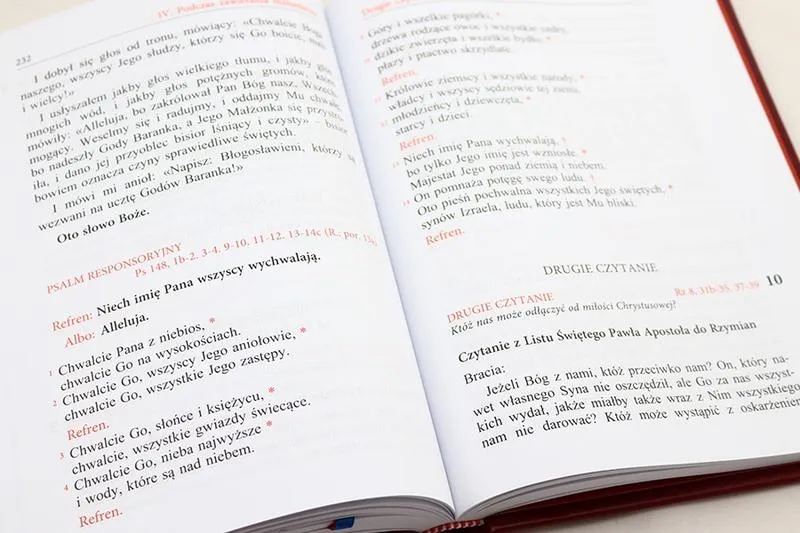 232
IV. Podczas zawierania małżeństwa
I dobył się głos od tronu, mówiący: «Chwalcie Boga
naszego, wszyscy Jego słudzy, którzy się Go boicie, mali
i wielcy!»
I usłyszałem jakby głos wielkiego tłumu, i jakby głos
mnogich wód, i jakby głos potężnych gromów, które
mówiły: «Alleluja, bo zakrólował Pan Bóg nasz, Wszech-
mogący. Weselmy się i radujmy, i oddajmy Mu chwałę,
bo nadeszły Gody Baranka, a Jego Małżonka się przystro-
iła, i dano jej przyoblec bisior lśniący i czysty» – bisior
bowiem oznacza czyny sprawiedliwe świętych.
I mówi mi anioł: «Napisz: Błogosławieni, którzy są
wezwani na ucztę Godów Baranka!»
Oto słowo Boże.
PSALM RESPONSORYJNY
Ps 148, 1b-2. 3-4. 9-10. 11-12. 13-14c (R.: por. 13a)
Refren: Niech imię Pana wszyscy wychwalają.
Albo: Alleluja.
1 Chwalcie Pana z niebios, *
chwalcie Go na wysokościach.
2 Chwalcie Go, wszyscy Jego aniołowie, *
chwalcie Go, wszystkie Jego zastępy.
Refren.
3 Chwalcie Go, słońce i księżycu, *
chwalcie, wszystkie gwiazdy świecące.
4 Chwalcie Go, nieba najwyższe *
i wody, które są nad niebem.
Refren.
9 Góry i wszelkie pagórki, *
drzewa rodzące owoc i wszystkie cedry,
10 dzikie zwierzęta i wszelkie bydło, *
płazy i ptactwo skrzydlate.
Refren.
11 Królowie ziemscy i wszystkie narody, *
władcy i wszyscy sędziowie tej ziemi,
12 młodzieńcy i dziewczęta, *
starcy i dzieci.
Refren.
13 Niech imię Pana wychwalają, †
bo tylko Jego imię jest wzniosłe. *
Majestat Jego ponad ziemią i niebem.
14 On pomnaża potęgę swego ludu. †
Oto pieśń pochwalna wszystkich Jego świętych, *
synów Izraela, ludu, który jest Mu bliski.
Refren.
DRUGIE CZYTANIE
10
DRUGIE CZYTANIE Rz 8, 31b-35. 37-39
Któż nas może odłączyć od miłości Chrystusowej?
Czytanie z Listu Świętego Pawła Apostoła do Rzymian
Bracia:
Jeżeli Bóg z nami, któż przeciwko nam? On, który na-
wet własnego Syna nie oszczędził, ale Go za nas wszyst-
kich wydał, jakże miałby także wraz z Nim wszystkiego
nam nie darować? Któż może wystąpić z oskarżeniem